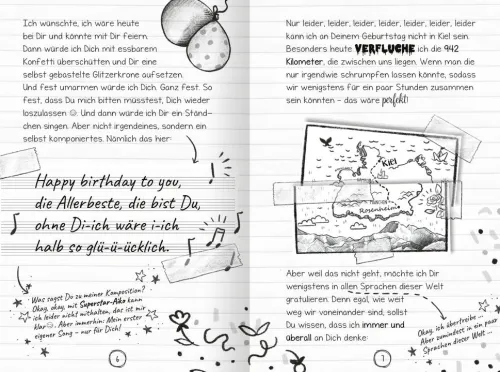 Ich wünschte, ich wäre heute
bei Dir und könnte mit Dir feiern.
Dann würde ich Dich mit essbarem
Konfetti überschütten und Dir eine
selbst gebastelte Glitzerkrone aufsetzen.
Und fest umarmen würde ich Dich. Ganz fest. So
fest, dass Du mich bitten müsstest, Dich wieder
loszulassen ☺. Und dann würde ich Dir ein Ständ-
chen singen. Aber nicht irgendeines, sondern ein
selbst komponiertes. Nämlich das hier:
Happy birthday to you,
die Allerbeste, die bist Du,
ohne Di-ich wäre i-ich
halb so glü-ü-ücklich.
Was sagst Du zu meiner Komposition?
Okay, okay, mit Superstar-Aiko kann
ich leider nicht mithalten, das ist mir
klar ☺. Aber immerhin: Mein erster
eigener Song – nur für Dich!
6
Nur leider, leider, leider, leider, leider, leider, leider
kann ich an Deinem Geburtstag nicht in Kiel sein.
Besonders heute VERFLUCHE ich die 942
Kilometer, die zwischen uns liegen. Wenn man die
nur irgendwie schrumpfen lassen könnte, sodass
wir wenigstens für ein paar Stunden zusammen
sein könnten – das wäre perfekt!
Kiel
Rosenheim
Aber weil das nicht geht, möchte ich Dir
wenigstens in allen Sprachen dieser Welt
gratulieren. Denn egal, wie weit
weg wir voneinander sind, sollst
Du wissen, dass ich immer und
überall an Dich denke:
Okay, ich übertreibe ...
Aber zumindest in ein paar
Sprachen dieser Welt ...
7